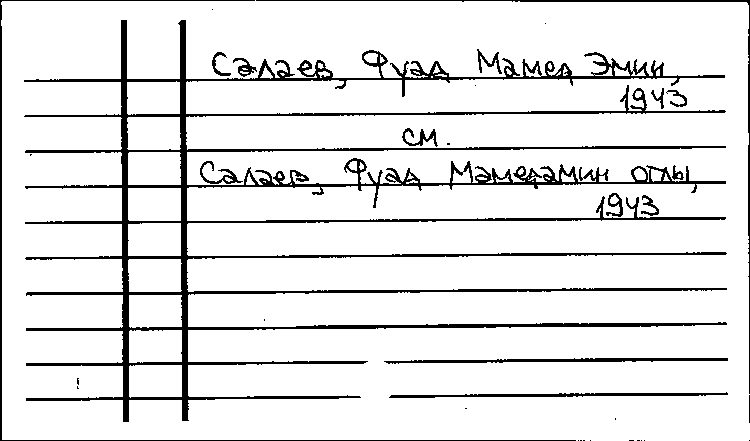 Салаев, Фуад Мамед Эмин,
1943
см.
Салаев, Фуад Мамедамин оглы,
1943